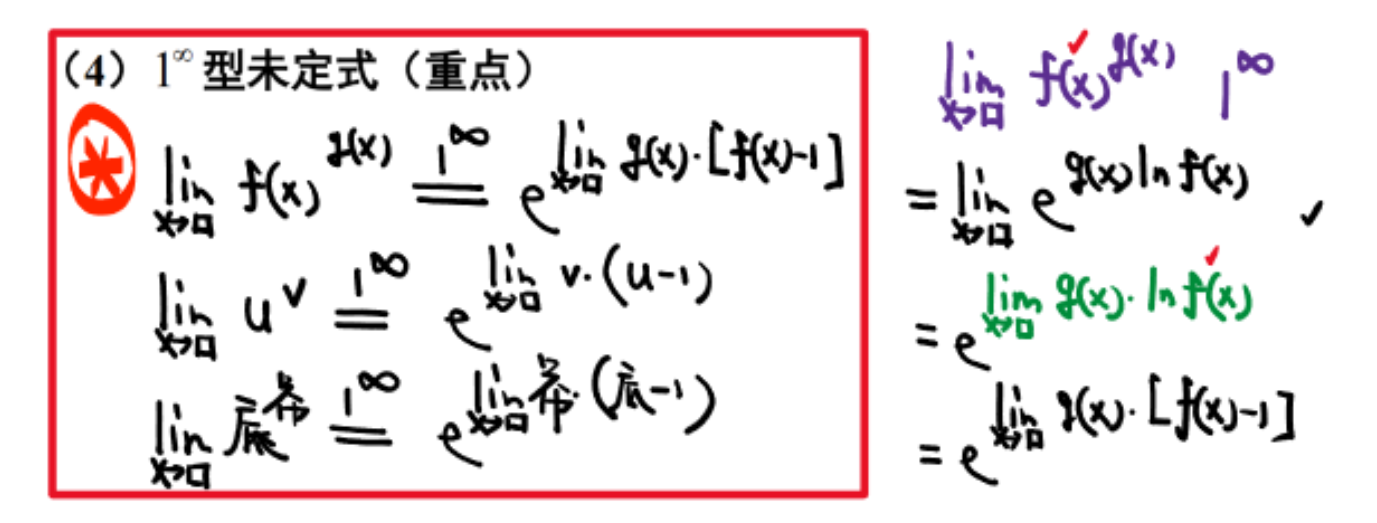 (4) 1^∞ 型未定式（重点）
* lim x→□ f(x)^g(x) =(1^∞)= e^{lim x→□ g(x)·[f(x)-1]}
lim x→□ u^v =(1^∞)= e^{lim x→□ v·(u-1)}
lim x→□ 底^幂 =(1^∞)= e^{lim x→□ 幂·(底-1)}
lim x→□ f(x)^g(x) 1^∞
= lim x→□ e^{g(x) ln f(x)} ✓
= e^{lim x→□ g(x)·ln f(x)}
= e^{lim x→□ g(x)·[f(x)-1]}